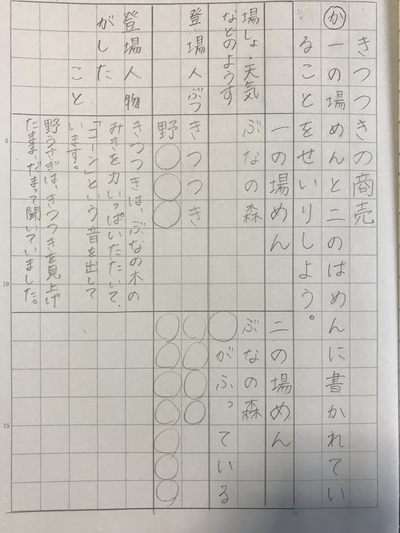 きつつきの商売
か 一の場めんと二のはめんに書かれてい
ることをせいりしよう。
一の場めん
二の場めん
場しょ・天気
などのようす
ぶなの森
ぶなの森
○がふっている
登場人ぶつ
きつつき
野○○
○○○○
○○○○○○○
登場人物
がした
こと
きつつきは、ぶなの木の
みきを力いっぱいたたいて、
「コーン」という音を出して
います。
野うさぎは、きつつきを見上げ
たまま、だまって聞いていました。
5
10
15